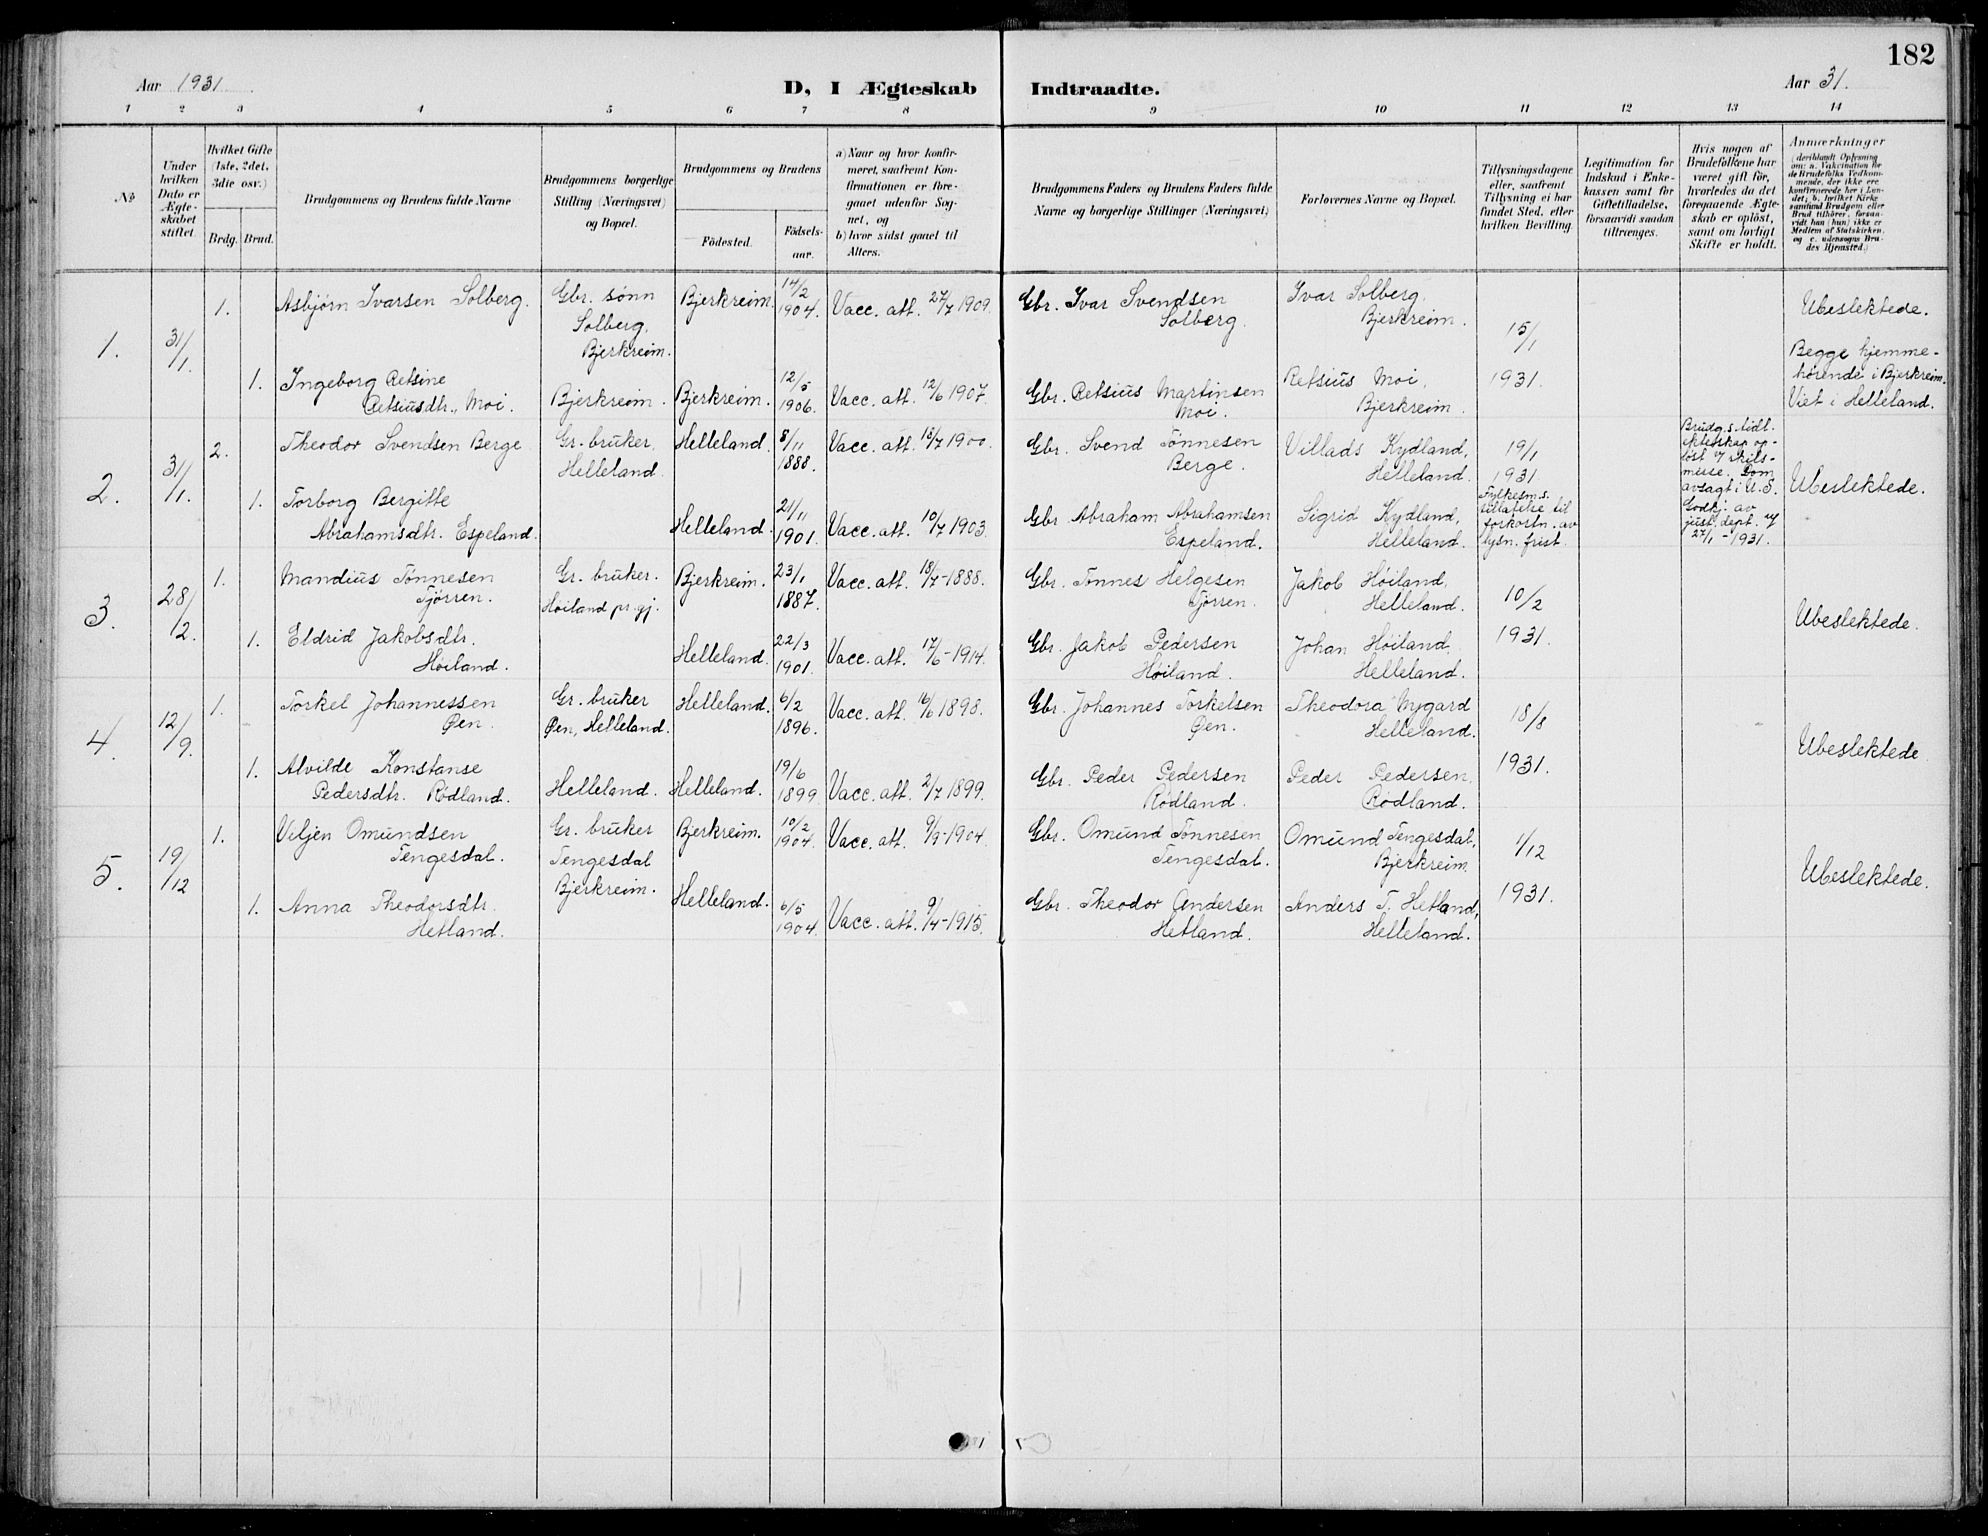 182
Aar 1931
D, I Ægteskab Indtraadte.
Aar 31.
1 2 3 4 5 6 7 8 9 10 11 12 13 14
No
Under hvilken Dato er Ægteskabet stiftet.
Hvilket Gifte (1ste, 2det, 3die osv.)
Brdg. Brud.
Brudgommens og Brudens fulde Navne
Brudgommens borgerlige Stilling (Næringsvei) og Bopæl.
Brudgommens og Brudens
Födested.
Födselsaar.
a) Naar og hvor konfirmeret, saafremt Konfirmationen er foregaaet udenfor Sognet, og
b) hvor sidst gaaet til Alters.
Brudgommens Faders og Brudens Faders fulde Navne og borgerlige Stillinger (Næringsvei)
Forlovernes Navne og Bopæl.
Tillysningsdagene eller, saafremt Tillysning ei har fundet Sted, efter hvilken Bevilling.
Legitimation for Indskud i Enkekassen samt for Giftetilladelse, forsaavidt saadan tiltrænges.
Hvis nogen af Brudefolkene har været gift för, hvorledes da det foregaaende Ægteskab er oplöst, samt om lovligt Skifte er holdt.
Anmærkninger
(deriblandt Oplysning om: a. Vakcination for de Brudefolks Vedkommende, der ikke ere konfirmerede her i Landet; b. hvilket Kirkesamfund Brudgom eller Brud tilhörer, forsaavidt han (hun) ikke er Medlem af Statskirken, og c. udensogns Brudes Hjemsted.)
1. 31/1. 1. Asbjørn Ivarsen Solberg. Gbr. sønn Solberg, Bjerkreim. Bjerkreim. 14/2 1904. Vacc. att. 27/7 1909. Gbr. Ivar Svendsen Solberg. Ivar Solberg, Bjerkreim. 15/1 1931. Ubeslektede. Begge hjemmehørende i Bjerkreim. Viet i Helleland.
1. Ingeborg Retsine Retsiusdtr. Moi. Bjerkreim. Bjerkreim. 12/5 1906. Vacc. att. 12/6 1907. Gbr. Retsius Martinsen Moi. Retsius Moi, Bjerkreim.
2. 31/1. 2. Theodor Svendsen Berge Gr. bruker, Helleland. Helleland. 8/11 1888. Vacc. att. 18/7 1900. Gbr. Svend Tønnesen Berge. Villads Kydland, Helleland. 19/1 1931 Fylkesm.s. tillatelse til forkortn. av lysn. frist. Brudg.s tidl. ekteskap opløst v/ skilsmisse. Dom avsagt i U.S. Godkj. av just. dept. u/ 27/1-1931. Ubeslektede.
1. Torborg Bergitte Abrahamsdtr. Espeland. Helleland. 21/11 1901. Vacc. att. 10/7 1903. Gbr Abraham Abrahamsen Espeland. Sigrid Kydland, Helleland.
3. 28/2. 1. Mandius Tønnesen Tjørren. Gr. bruker. Høiland pr. gj. Bjerkreim. 23/1 1887. Vacc. att. 18/7-1888. Gbr. Tønnes Helgesen Tjørren. Jakob Høiland, Helleland. 10/2 1931. Ubeslektede.
1. Eldrid Jakobsdtr. Høiland. Helleland. 22/3 1901. Vacc. att. 17/6-1914. Gbr. Jakob Pedersen Høiland. Johan Høiland, Helleland.
4. 12/9. 1. Torkel Johannessen Øen. Gr. bruker Øen, Helleland. Helleland. 6/2 1896. Vacc. att. 16/6 1898. Gbr. Johannes Torkelsen Øen. Theodora Nygard Helleland. 18/8 1931. Ubeslektede
1. Alvilde Konstanse Pedersdtr. Rødland. Helleland. Helleland. 19/6 1899 Vacc. att. 2/7 1899. Gbr. Peder Pedersen Rødland. Peder Pedersen, Rødland.
5. 19/12 1. Viljen Omundsen Tengesdal. Gr. bruker Tengesdal Bjerkreim. Bjerkreim. 10/2 1904. Vacc. att. 9/9-1904. Gbr. Omund Tønnesen Tengesdal. Omund Tengesdal, Bjerkreim. 1/12 1931. Ubeslektede.
1. Anna Theodorsdtr. Hetland. Helleland. 6/5 1904. Vacc. att. 9/4-1915. Gbr. Theodor Andersen Hetland. Anders T. Hetland, Helleland.